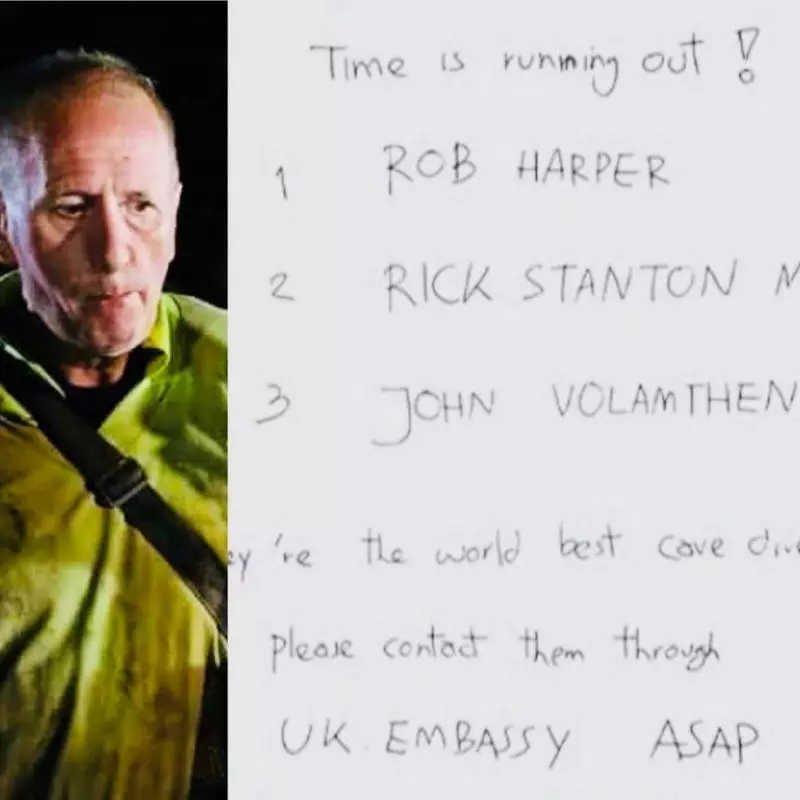 Time is running out !
1 ROB HARPER
2 RICK STANTON M
3 JOHN VOLAMTHEN
ey're the world best cave dive
please contact them through
UK EMBASSY ASAP